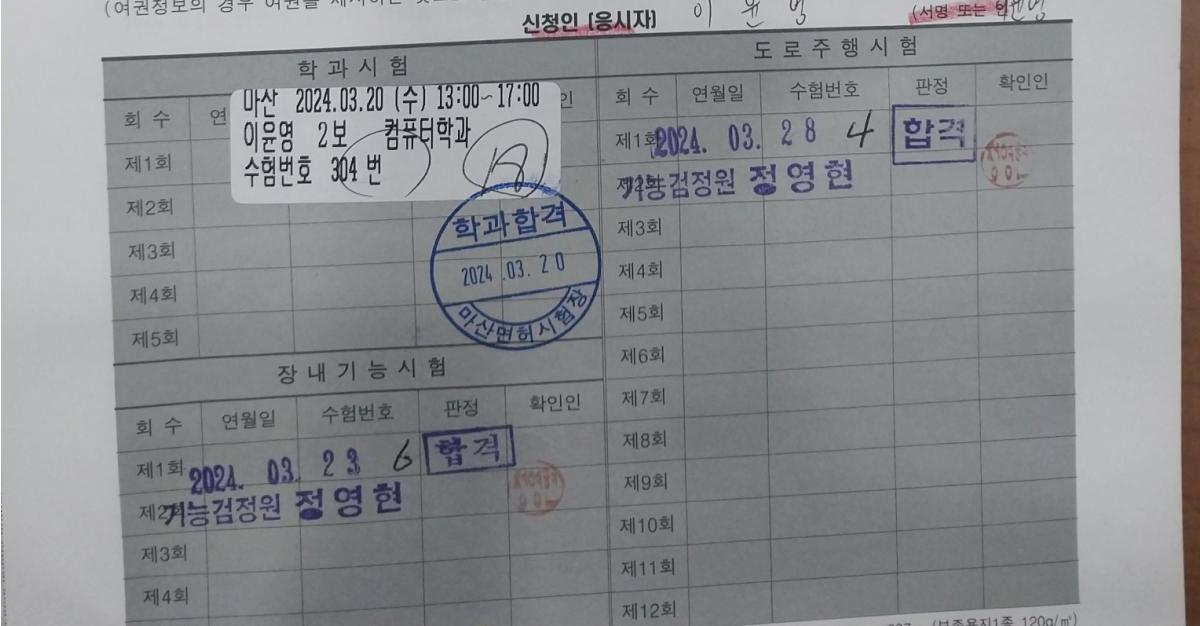 (여권정보의 경우 여권을
신청인 [응시자] 이 윤 영 (서명 또는 인
학 과 시 험
회 수 연 인
마산 2024.03.20 (수) 13:00~17:00
이윤영 2보 컴퓨터학과
수험번호 304 번
제1회
제2회
제3회
제4회
제5회
학과합격
2024.03.20
마산면허시험장
장 내 기 능 시 험
회 수 연월일 수험번호 판정 확인인
제1회 2024. 03. 23 6 합격
제2회 기능검정원 정영현
제3회
제4회
도 로 주 행 시 험
회 수 연월일 수험번호 판정 확인인
제1회 2024. 03. 28 4 합격
제2회 기능검정원 정영현
제3회
제4회
제5회
제6회
제7회
제8회
제9회
제10회
제11회
제12회
(보존용지1종 120g/㎡)